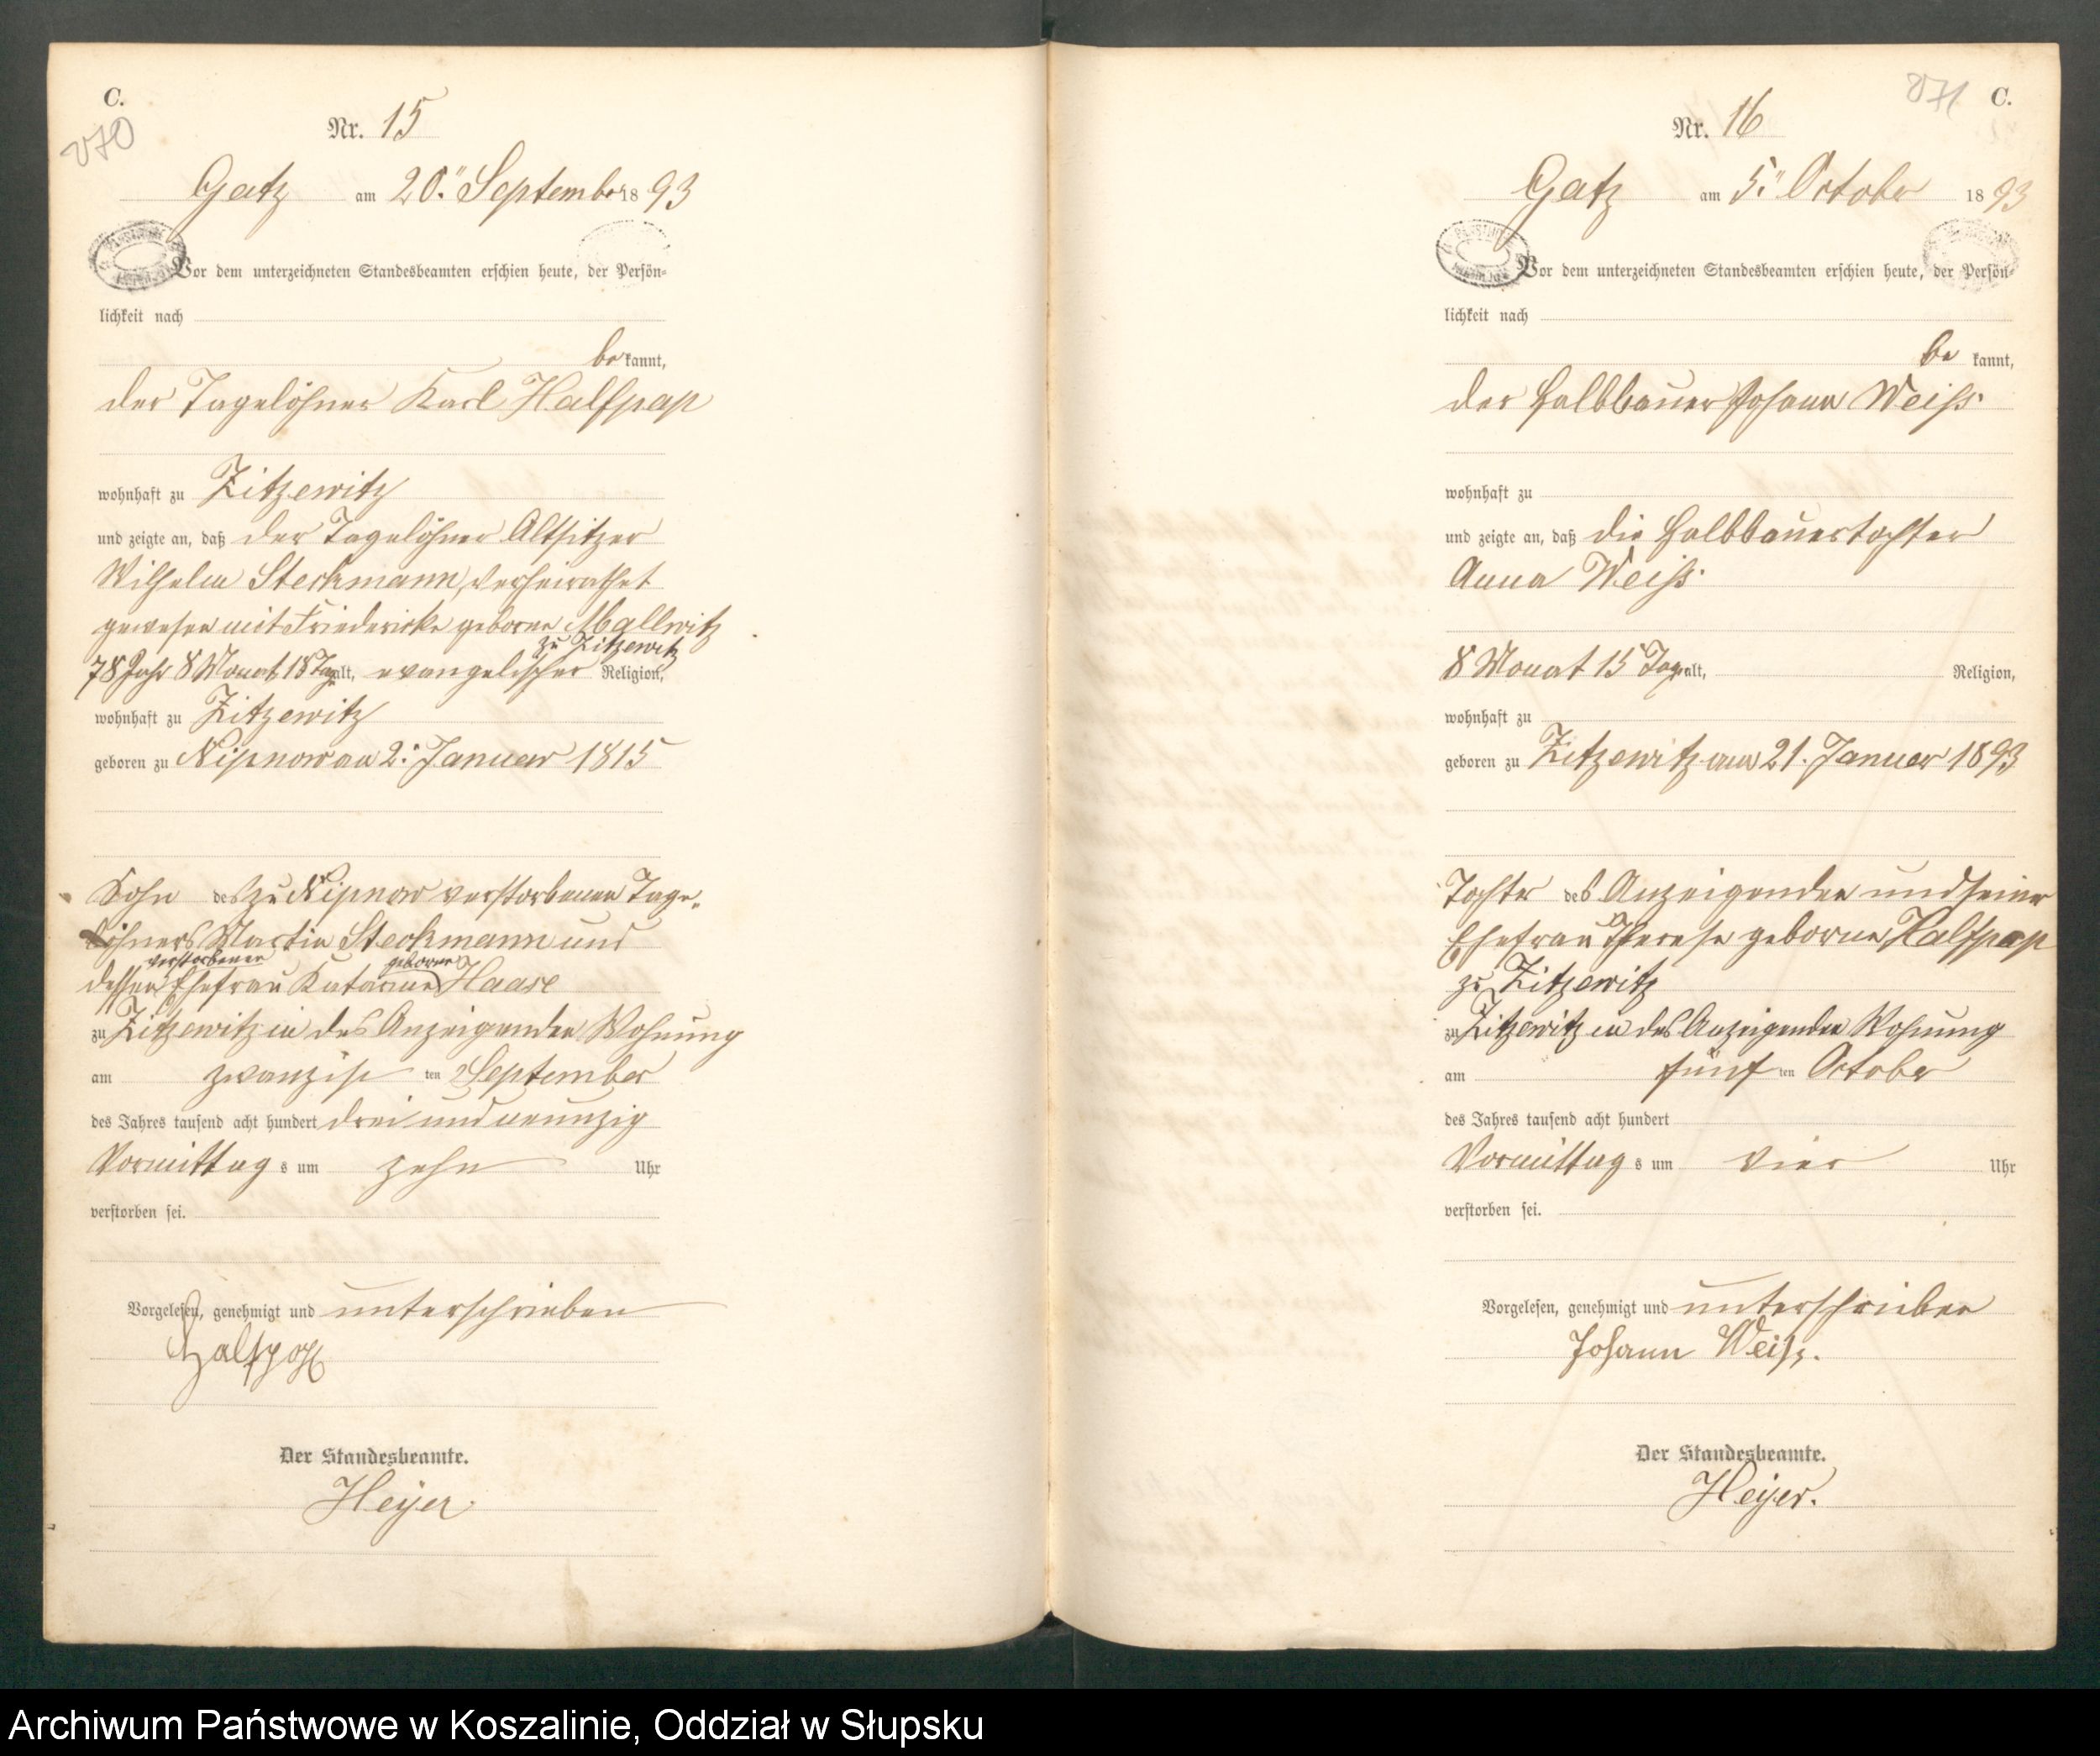 C.
070
Nr. 15
Gatz am 20." September 1893
Vor dem unterzeichneten Standesbeamten erschien heute, der Persön-
lichkeit nach
bekannt,
der Tagelöhner Karl Halfpap
wohnhaft zu Zitzewitz
und zeigte an, daß der Tagelöhner Altsitzer
Wilhelm Steckmann, verheirathet
gewesen mit Friedericke geborne Mallwitz
zu Zitzewitz
78 Jahr 8 Monat 18 Tag alt, evangelischer Religion,
wohnhaft zu Zitzewitz
geboren zu Nipnow am 2. Januar 1815
Sohn des zu Nipnow verstorbenen Tage-
löhners Martin Steckmann und
verstorbenen geborne
dessen Ehefrau Katarine Haase
zu Zitzewitz in des Anzeigenden Wohnung
am zwanzigsten September
des Jahres tausend acht hundert drei und neunzig
Vormittags um zehn Uhr
verstorben sei.
Vorgelesen, genehmigt und unterschrieben
Halfpap
Der Standesbeamte.
Heyer.
071 C.
Nr. 16
Gatz am 5." October 1893
Vor dem unterzeichneten Standesbeamten erschien heute, der Persön-
lichkeit nach
bekannt,
der Halbbauer Johann Weiß.
wohnhaft zu
und zeigte an, daß die Halbbauertochter
Anna Weiß.
8 Monat 15 Tage alt, Religion,
wohnhaft zu
geboren zu Zitzewitz am 21. Januar 1893
Tochter des Anzeigenden und seiner
Ehefrau Therese geborne Halfpap
zu Zitzewitz
zu Zitzewitz in des Anzeigenden Wohnung
am fünften October
des Jahres tausend acht hundert
Vormittags um vier Uhr
verstorben sei.
Vorgelesen, genehmigt und unterschrieben
Johann Weiß.
Der Standesbeamte.
Heyer.
Archiwum Państwowe w Koszalinie, Oddział w Słupsku